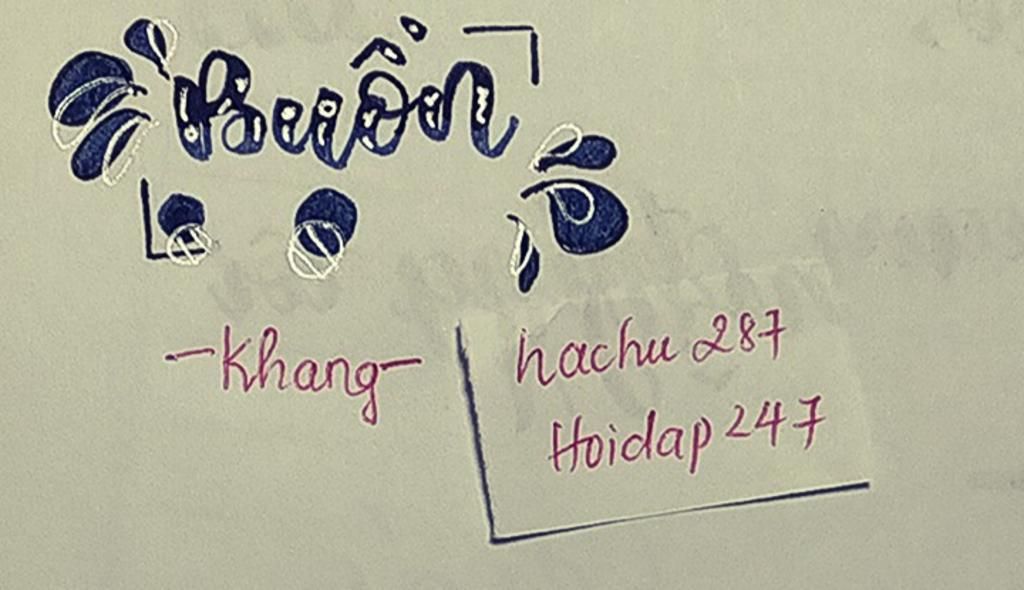 Buồn
-Khang-
hachu 287
Hoidap 247